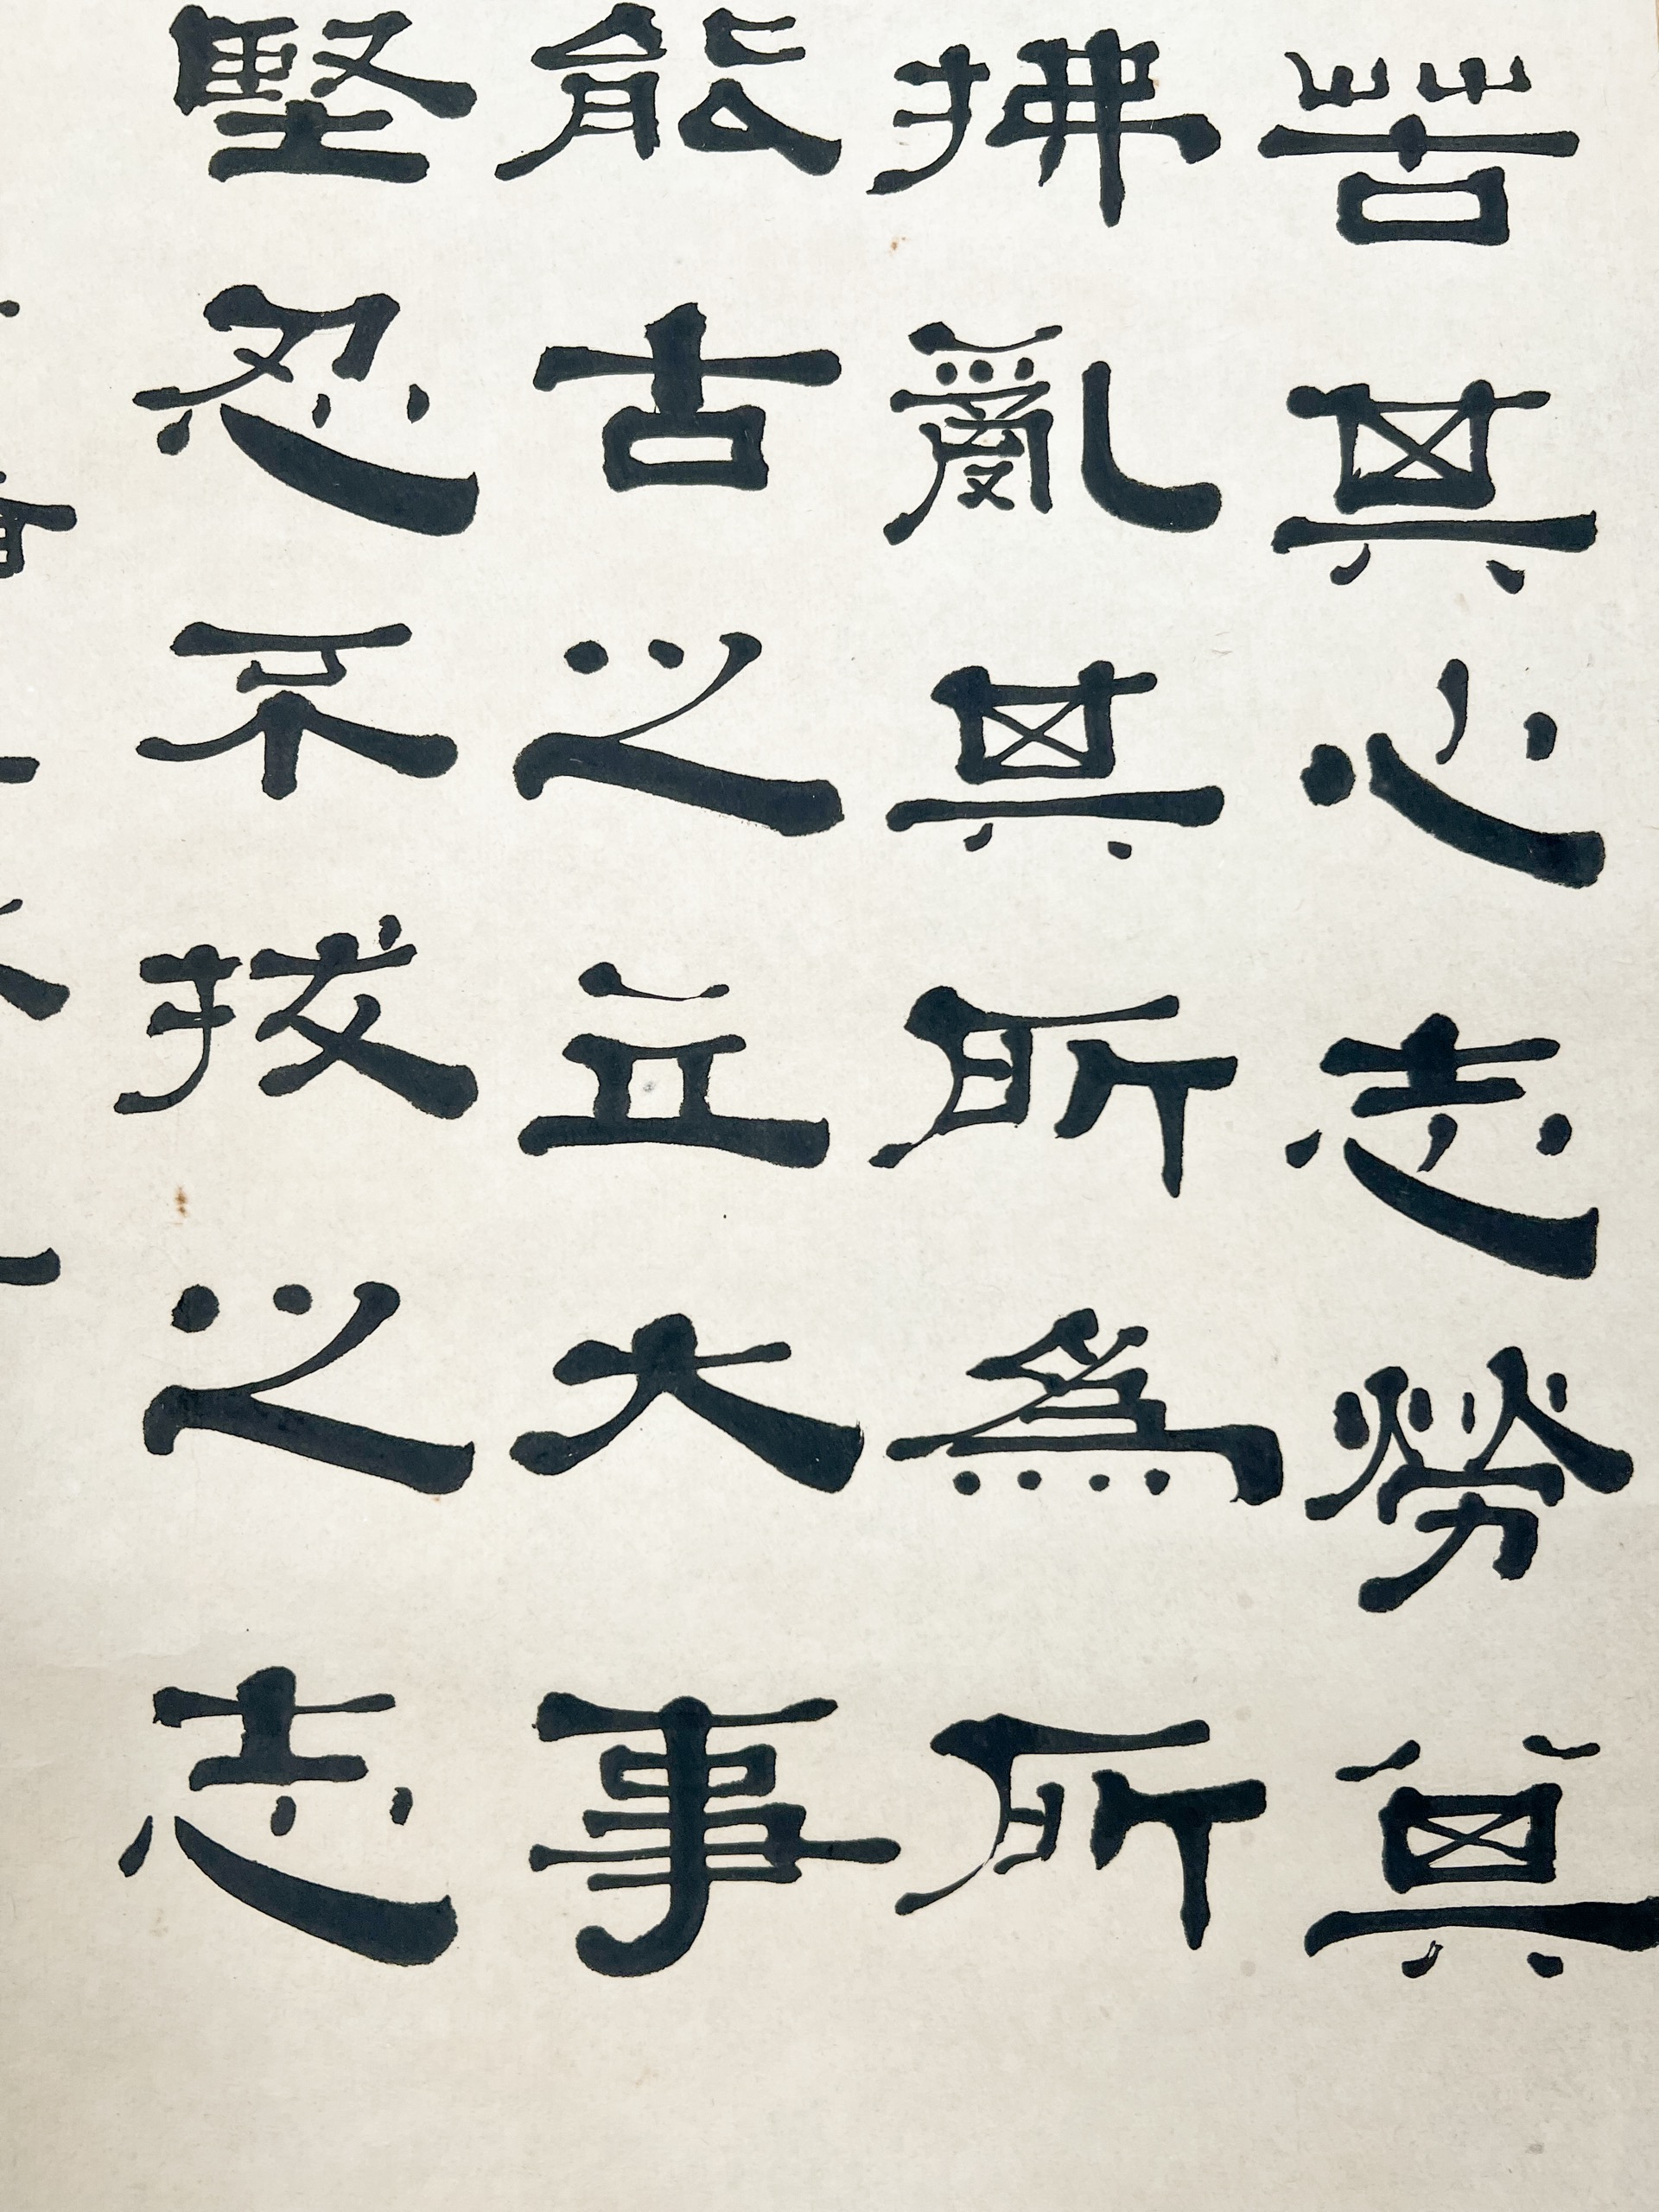 苦其心志勞其
拂亂其所為所
能古之立大事
堅忍不拔之志